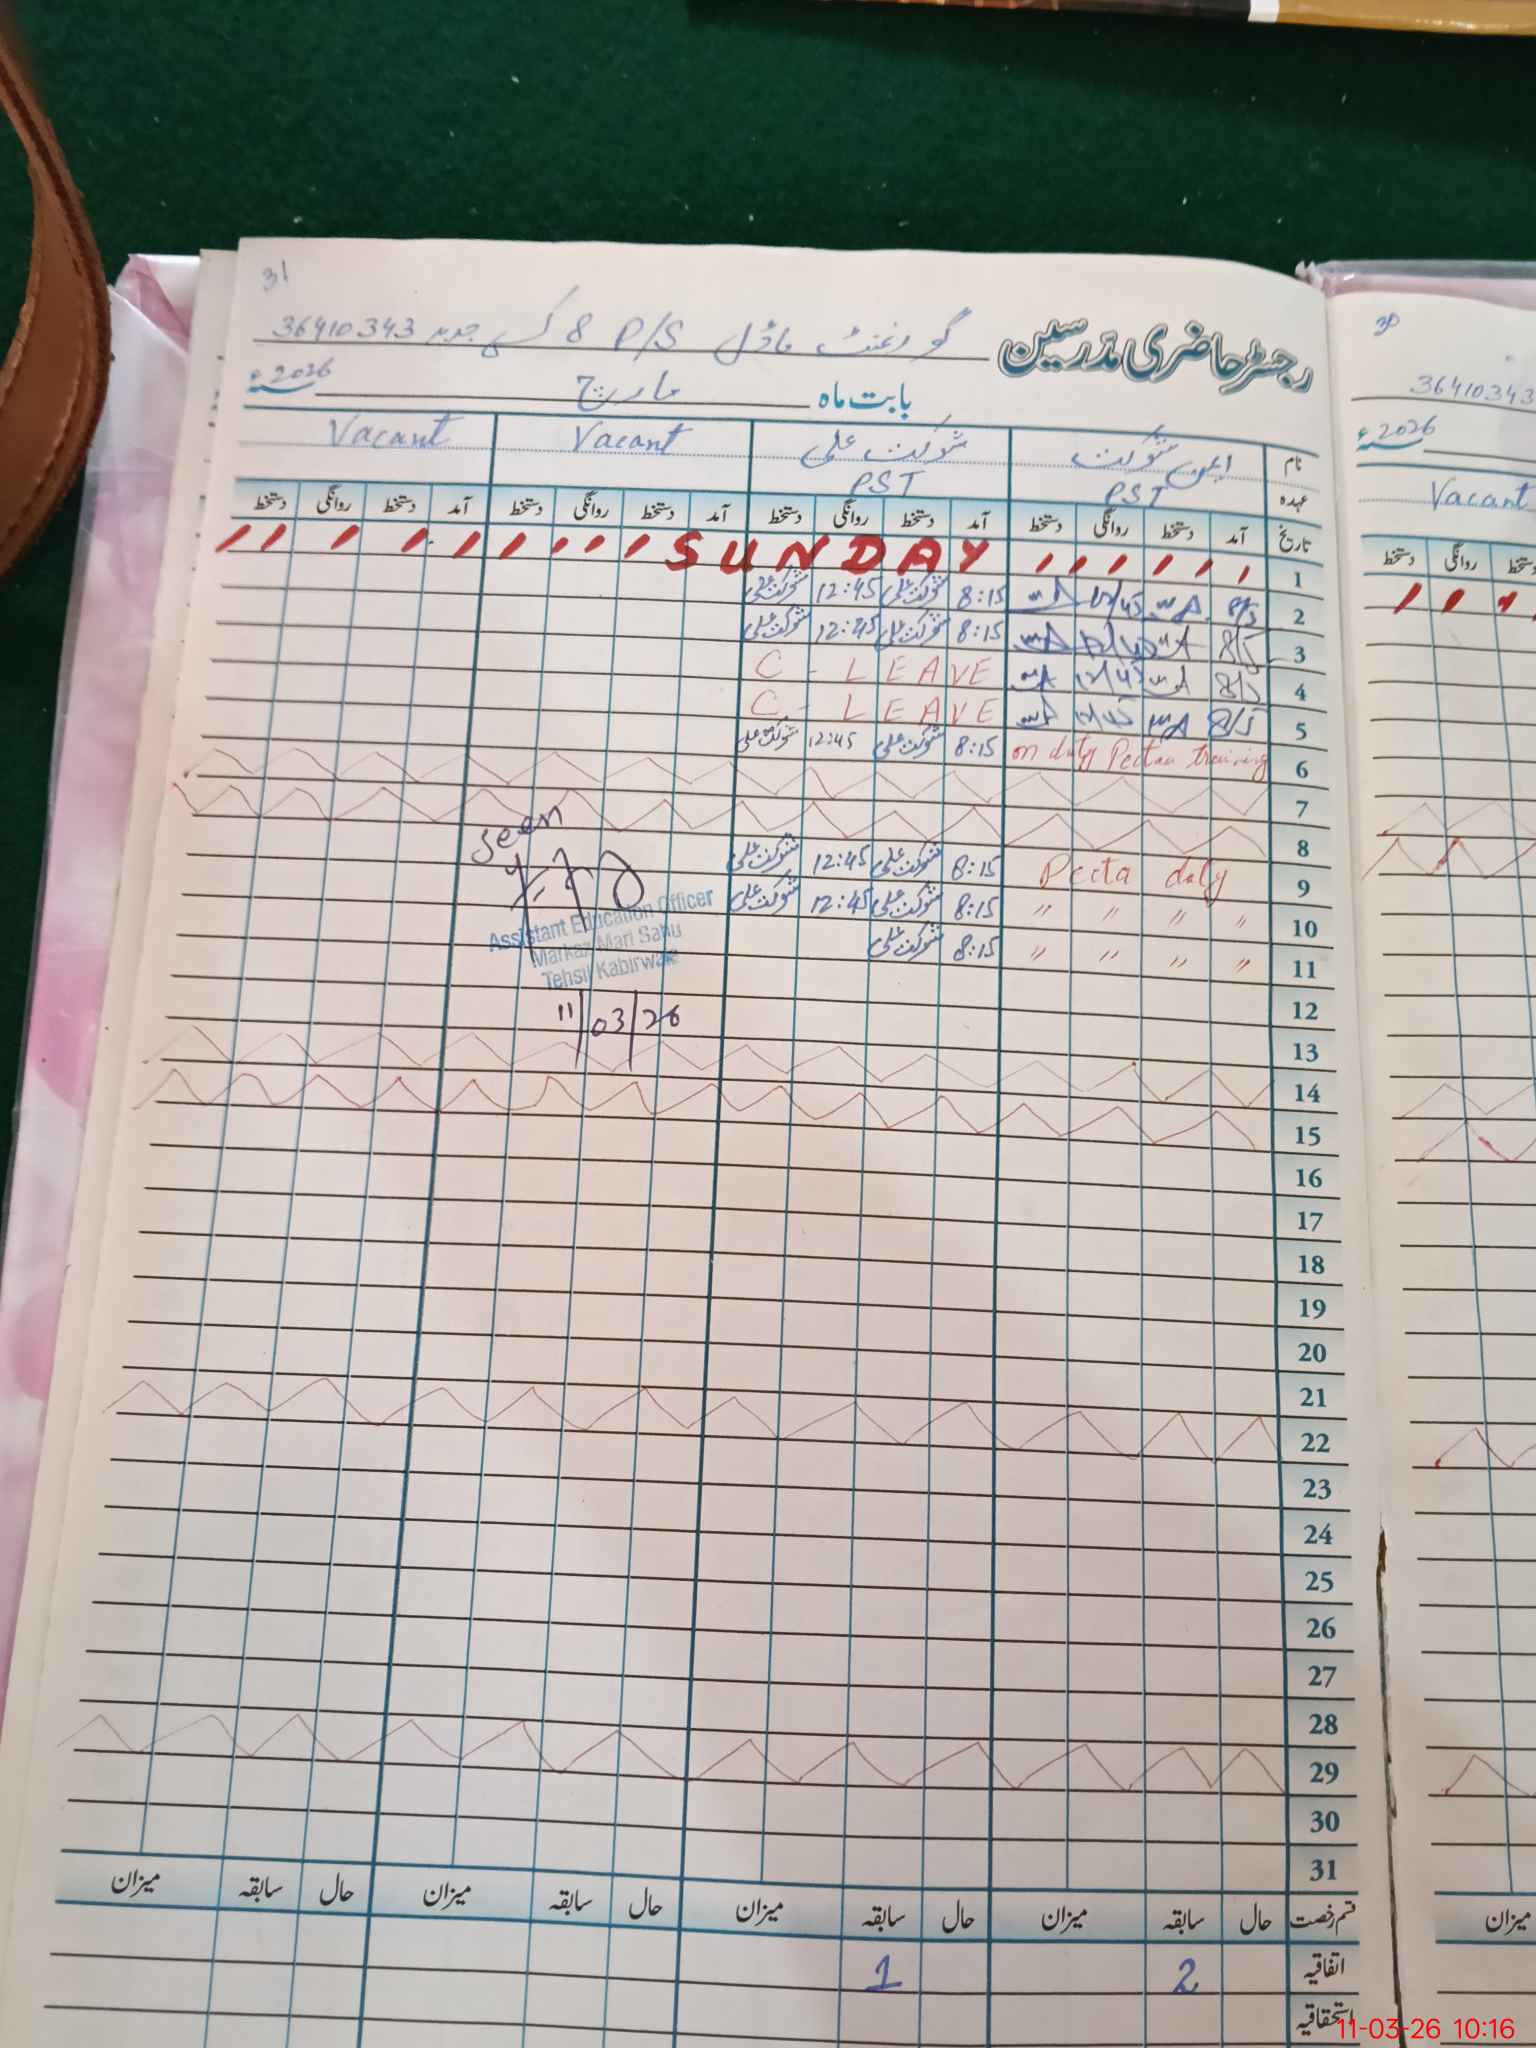 31
رجسٹر حاضری مدرسین گورنمنٹ ماڈل P/S 8 کسی جدید 36410343
بابت ماہ مارچ 2026ء
نام شوکت شوکت علی Vacant Vacant
عہدہ PST PST
تاریخ آمد دستخط روانگی دستخط آمد دستخط روانگی دستخط آمد دستخط روانگی دستخط آمد دستخط روانگی دستخط
1 SUNDAY
2 8/15 12/45 8:15 شوکت علی 12:45 شوکت علی
3 8/15 12/45 8:15 شوکت علی 12:45 شوکت علی
4 8/15 12/45 C - LEAVE
5 8/15 12/45 C - LEAVE
6 on duty Pectaa training 8:15 شوکت علی 12:45 شوکت علی
7
8
9 Pecta duty 8:15 شوکت علی 12:45 شوکت علی
10 " " " " 8:15 شوکت علی 12:45 شوکت علی
11 " " " " 8:15 شوکت علی
12
13
14
15
16
17
18
19
20
21
22
23
24
25
26
27
28
29
30
31
seen
Assistant Education Officer
Markaz Mari Sahu
Tehsil Kabirwala
11/03/26
قسم رخصت حال سابقہ میزان حال سابقہ میزان حال سابقہ میزان حال سابقہ میزان
اتفاقیہ 2 1
استحقاقیہ
30
36410343
2026ء
Vacant
روانگی دستخط
میزان
11-03-26 10:16